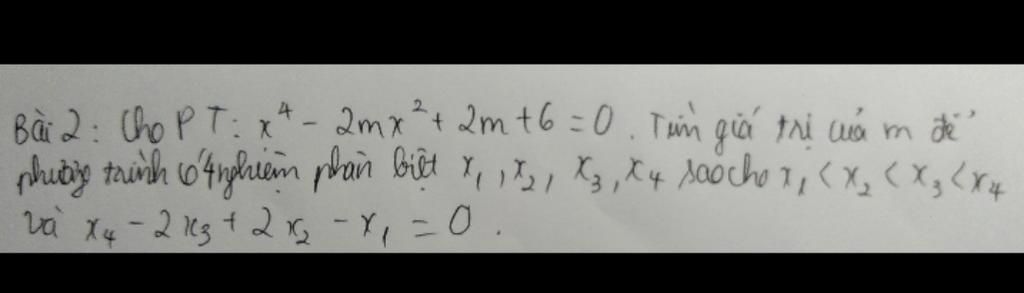 Bài 2: Cho PT: x⁴ - 2mx² + 2m + 6 = 0. Tìm giá trị của m để
phương trình có 4 nghiệm phân biệt x₁, x₂, x₃, x₄ sao cho x₁ < x₂ < x₃ < x₄
và x₄ - 2x₃ + 2x₂ - x₁ = 0.